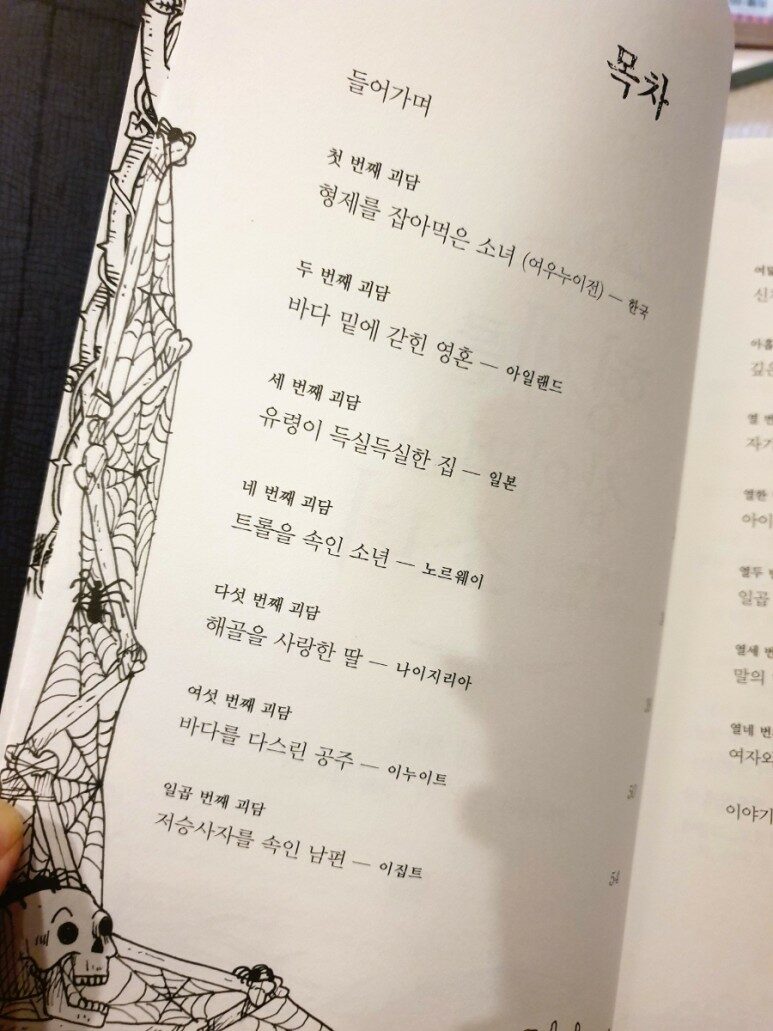 목차
들어가며
첫 번째 괴담
형제를 잡아먹은 소녀 (여우누이전) — 한국
두 번째 괴담
바다 밑에 갇힌 영혼 — 아일랜드
세 번째 괴담
유령이 득실득실한 집 — 일본
네 번째 괴담
트롤을 속인 소년 — 노르웨이
다섯 번째 괴담
해골을 사랑한 딸 — 나이지리아
여섯 번째 괴담
바다를 다스린 공주 — 이누이트
일곱 번째 괴담
저승사자를 속인 남편 — 이집트
54
열 번
자기
열한
아이
열두
일곱
열세 번
말의
열네 번
여자와
이야기